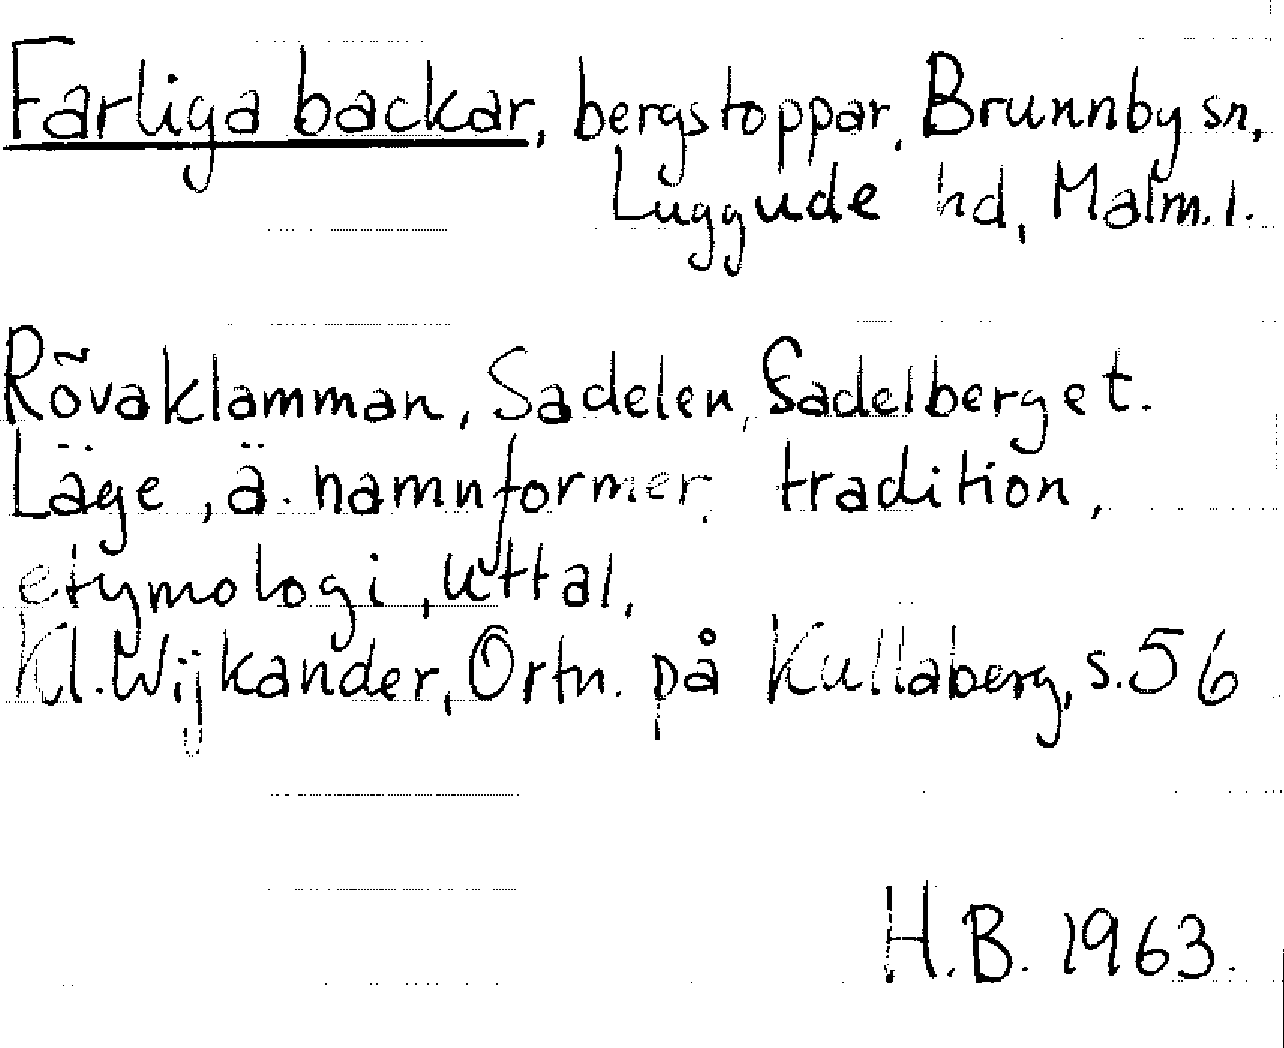 Farliga backar, bergstoppar, Brunnby sn,
Luggude hd, Malm. l.
Rövaklamman, Sadelen, Sadelberget.
Läge, ä. namnformer, tradition,
etymologi, uttal,
Kl. Wijkander, Ortn. på Kullaberg, s. 56
H.B. 1963.